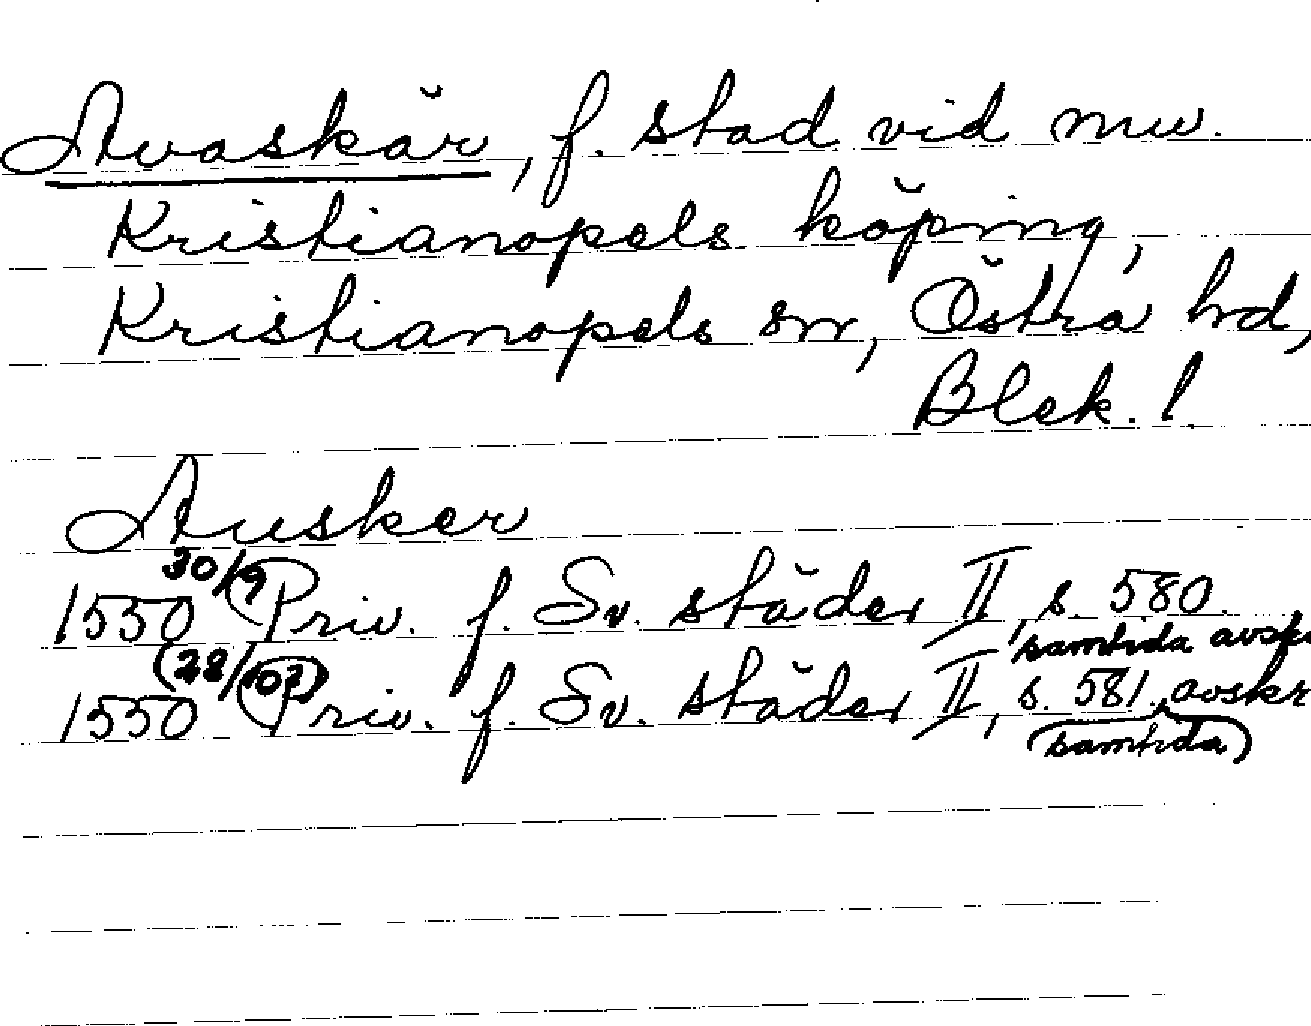 Avaskär, f. stad vid nuv.
Kristianopels köping,
Kristianopels sn, Östra hd,
Blek. l.
Ausker
1550 30/9 Priv. f. Sv. städer II, s. 580
samtida avskr
1550 (28/10?) Priv. f. Sv. städer II, s. 581, avskr
(samtida)